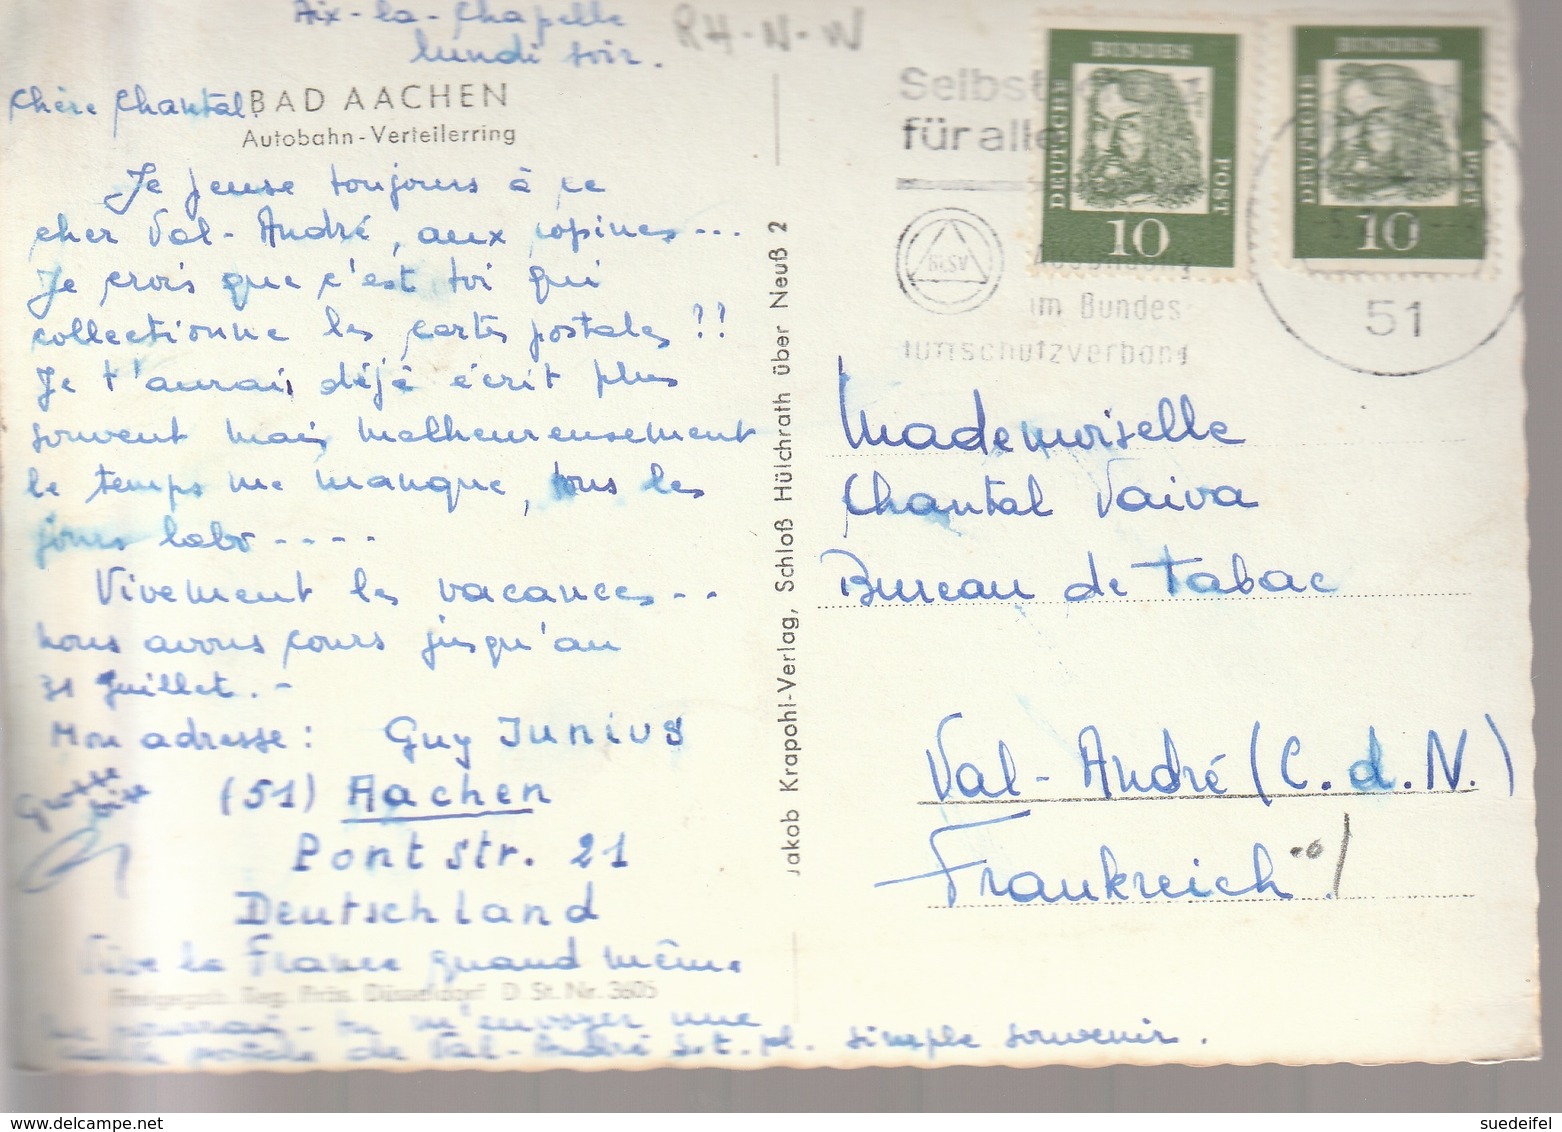 Aix-la-Chapelle
lundi soir.
RH-N-W
Chère Chantal.
BAD AACHEN
Autobahn-Verteilerring
Je pense toujours à ce
cher Val-André, aux copines...
Je crois que c'est toi qui
collectionne les cartes postales ??
Je t'aurais déjà écrit plus
souvent mais malheureusement
le temps me manque, tous les
jours labo ----
Vivement les vacances...
nous avons cours jusqu'au
31 Juillet.-
Mon adresse : Guy Junius
(51) Aachen
Pontstr. 21
Deutschland
Grosse
bise
Vive la France quand même
Freigegeb. Reg. Präs. Düsseldorf D. St. Nr. 3605
pourrais-tu m'envoyer une
carte postale de Val-André s.t.pl. simple souvenir.
Jakob Krapohl-Verlag, Schloß Hülchrath über Neuß 2
Selbst
für alle
ASB
im Bundes-
luftschutzverband
51
BUNDES
DEUTSCHE
POST
10
BUNDES
DEUTSCHE
POST
10
Mademoiselle
Chantal Vaiva
Bureau de Tabac
Val-André (C.d.N.)
Frankreich
suedeifel